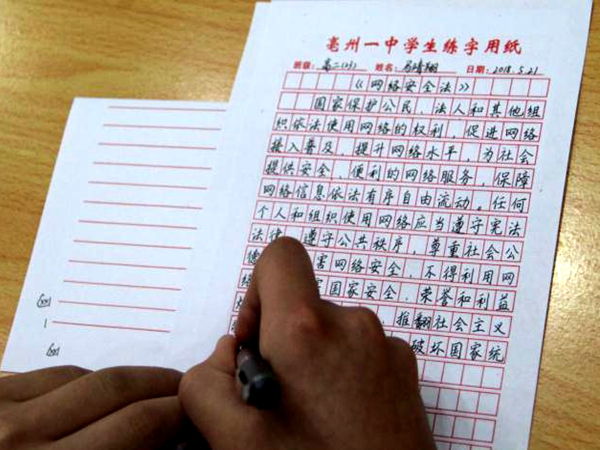 亳州一中学生练字用纸
班级: 高二 姓名: 日期: 2018.5.21
《网络安全法》
国家保护公民、法人和其他组
织依法使用网络的权利，促进网络
接入普及，提升网络水平，为社会
提供安全、便利的网络服务，保障
网络信息依法有序自由流动。任何
个人和组织使用网络应当遵守宪法
法律，遵守公共秩序，尊重社会公
德 害网络安全，不得利用网
络 害国家安全、荣誉和利益
推翻社会主义
破坏国家统